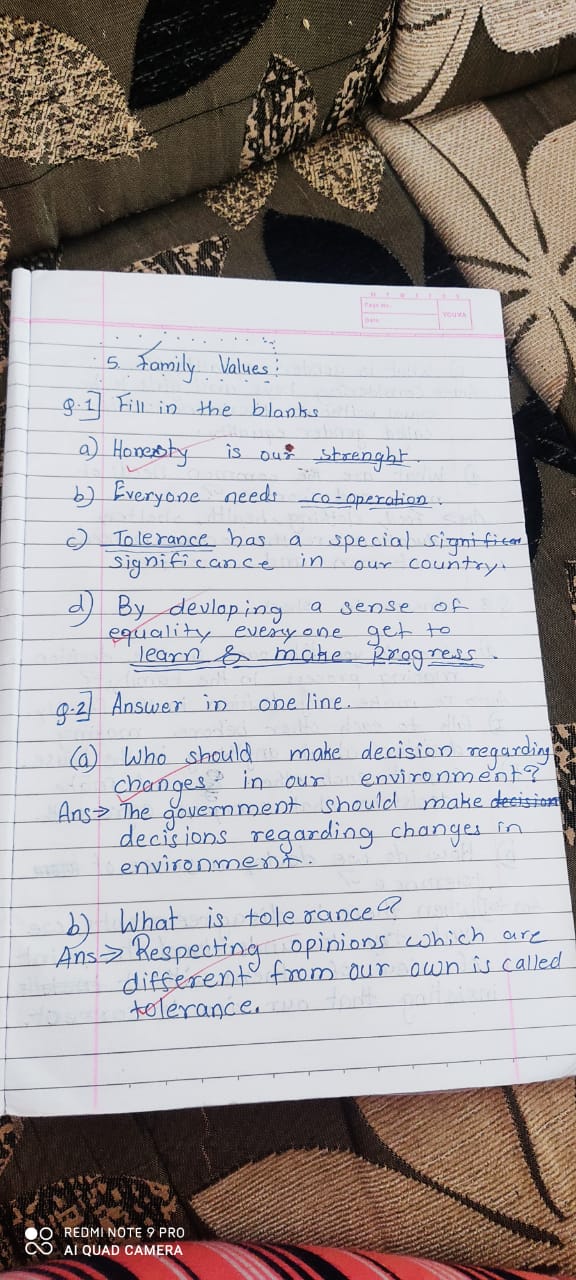 M T W T F S S
Page No.:
Date:
YOUVA
5. Family Values:
Q.1] Fill in the blanks
a) Honexsty is our strenght.
b) Everyone needs co-operation.
c) Tolerance has a special significan
significance in our country.
d) By devloping a sense of
equality everyone get to
learn & make Progress.
Q.2] Answer in one line.
(a) Who should make decision regarding
changes in our environment?
Ans→ The government should make decision
decisions regarding changes in
environment.
b) What is tolerance?
Ans→ Respecting opinions which are
different from our own is called
tolerance.
REDMI NOTE 9 PRO
AI QUAD CAMERA